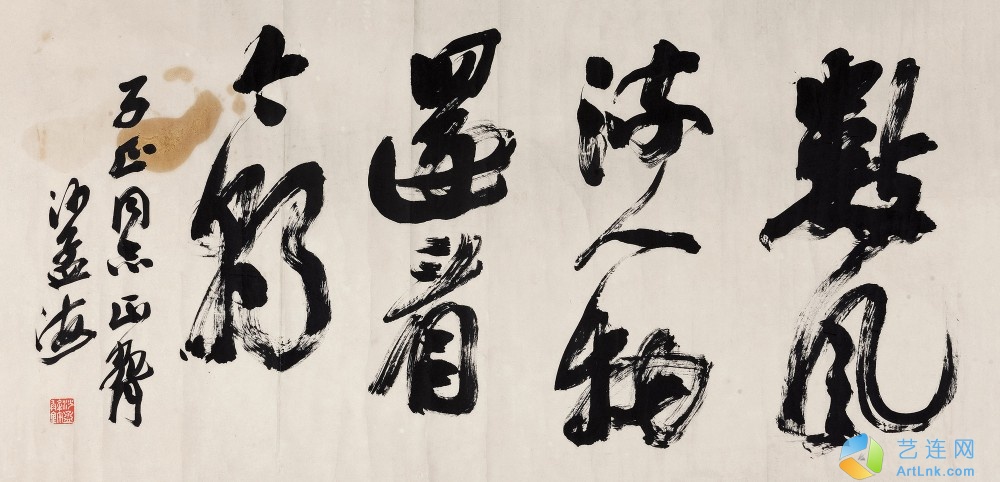 數風
流人物
還看
今朝
子正同志正腕
沙孟海
艺连网
ArtLnk.com